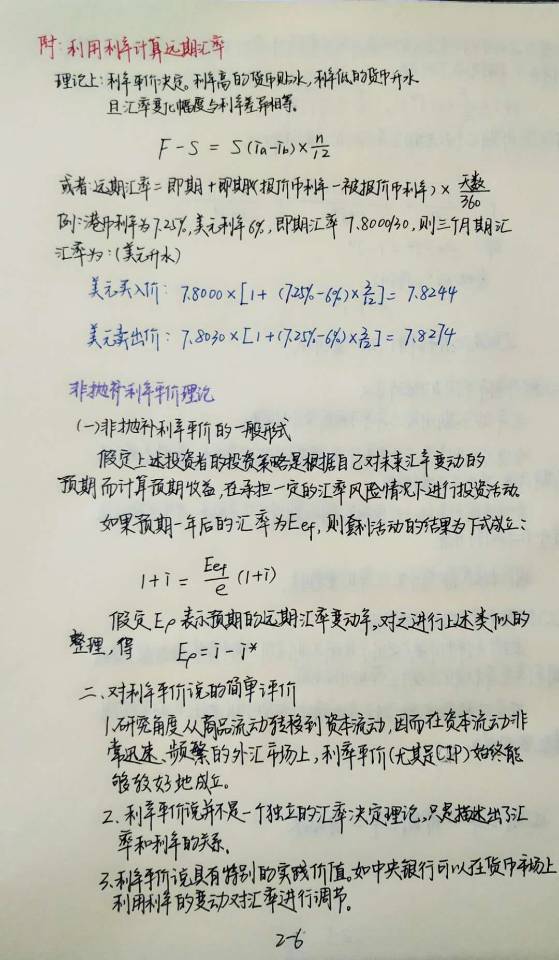 附:利用利率计算远期汇率
理论上:利率平价决定。利率高的货币贴水,利率低的货币升水
且汇率变化幅度与利率差异相等。
F-S = S(ia-ib)×n/12
或者:远期汇率=即期+即期(报价币利率-被报价币利率)× 天数/360
例:港币利率为7.25%,美元利率6%,即期汇率 7.8000/30,则三个月期汇
汇率为:(美元升水)
美元买入价: 7.8000×[1+ (7.25%-6%)×3/12]= 7.8244
美元卖出价: 7.8030×[1+(7.25%-6%)×3/12]= 7.8274
非抛补利率平价理论
(一)非抛补利率平价的一般形式
假定上述投资者的投资策略是根据自己对未来汇率变动的
预期而计算预期收益,在承担一定的汇率风险情况下进行投资活动。
如果预期一年后的汇率为Eef,则套利活动的结果为下式成立:
1+i = Eef/e (1+i)
假定Eρ表示预期的远期汇率变动率,对之进行上述类似的
整理,得 Eρ=i-i*
二、对利率平价说的简单评价
1.研究角度从商品流动转移到资本流动,因而在资本流动非
常迅速、频繁的外汇市场上,利率平价(尤其是CIP)始终能
够较好地成立。
2.利率平价说并不是一个独立的汇率决定理论,只是描述出了汇
率和利率的关系。
3.利率平价说具有特别的实践价值。如中央银行可以在货币市场上
利用利率的变动对汇率进行调节。
2-6